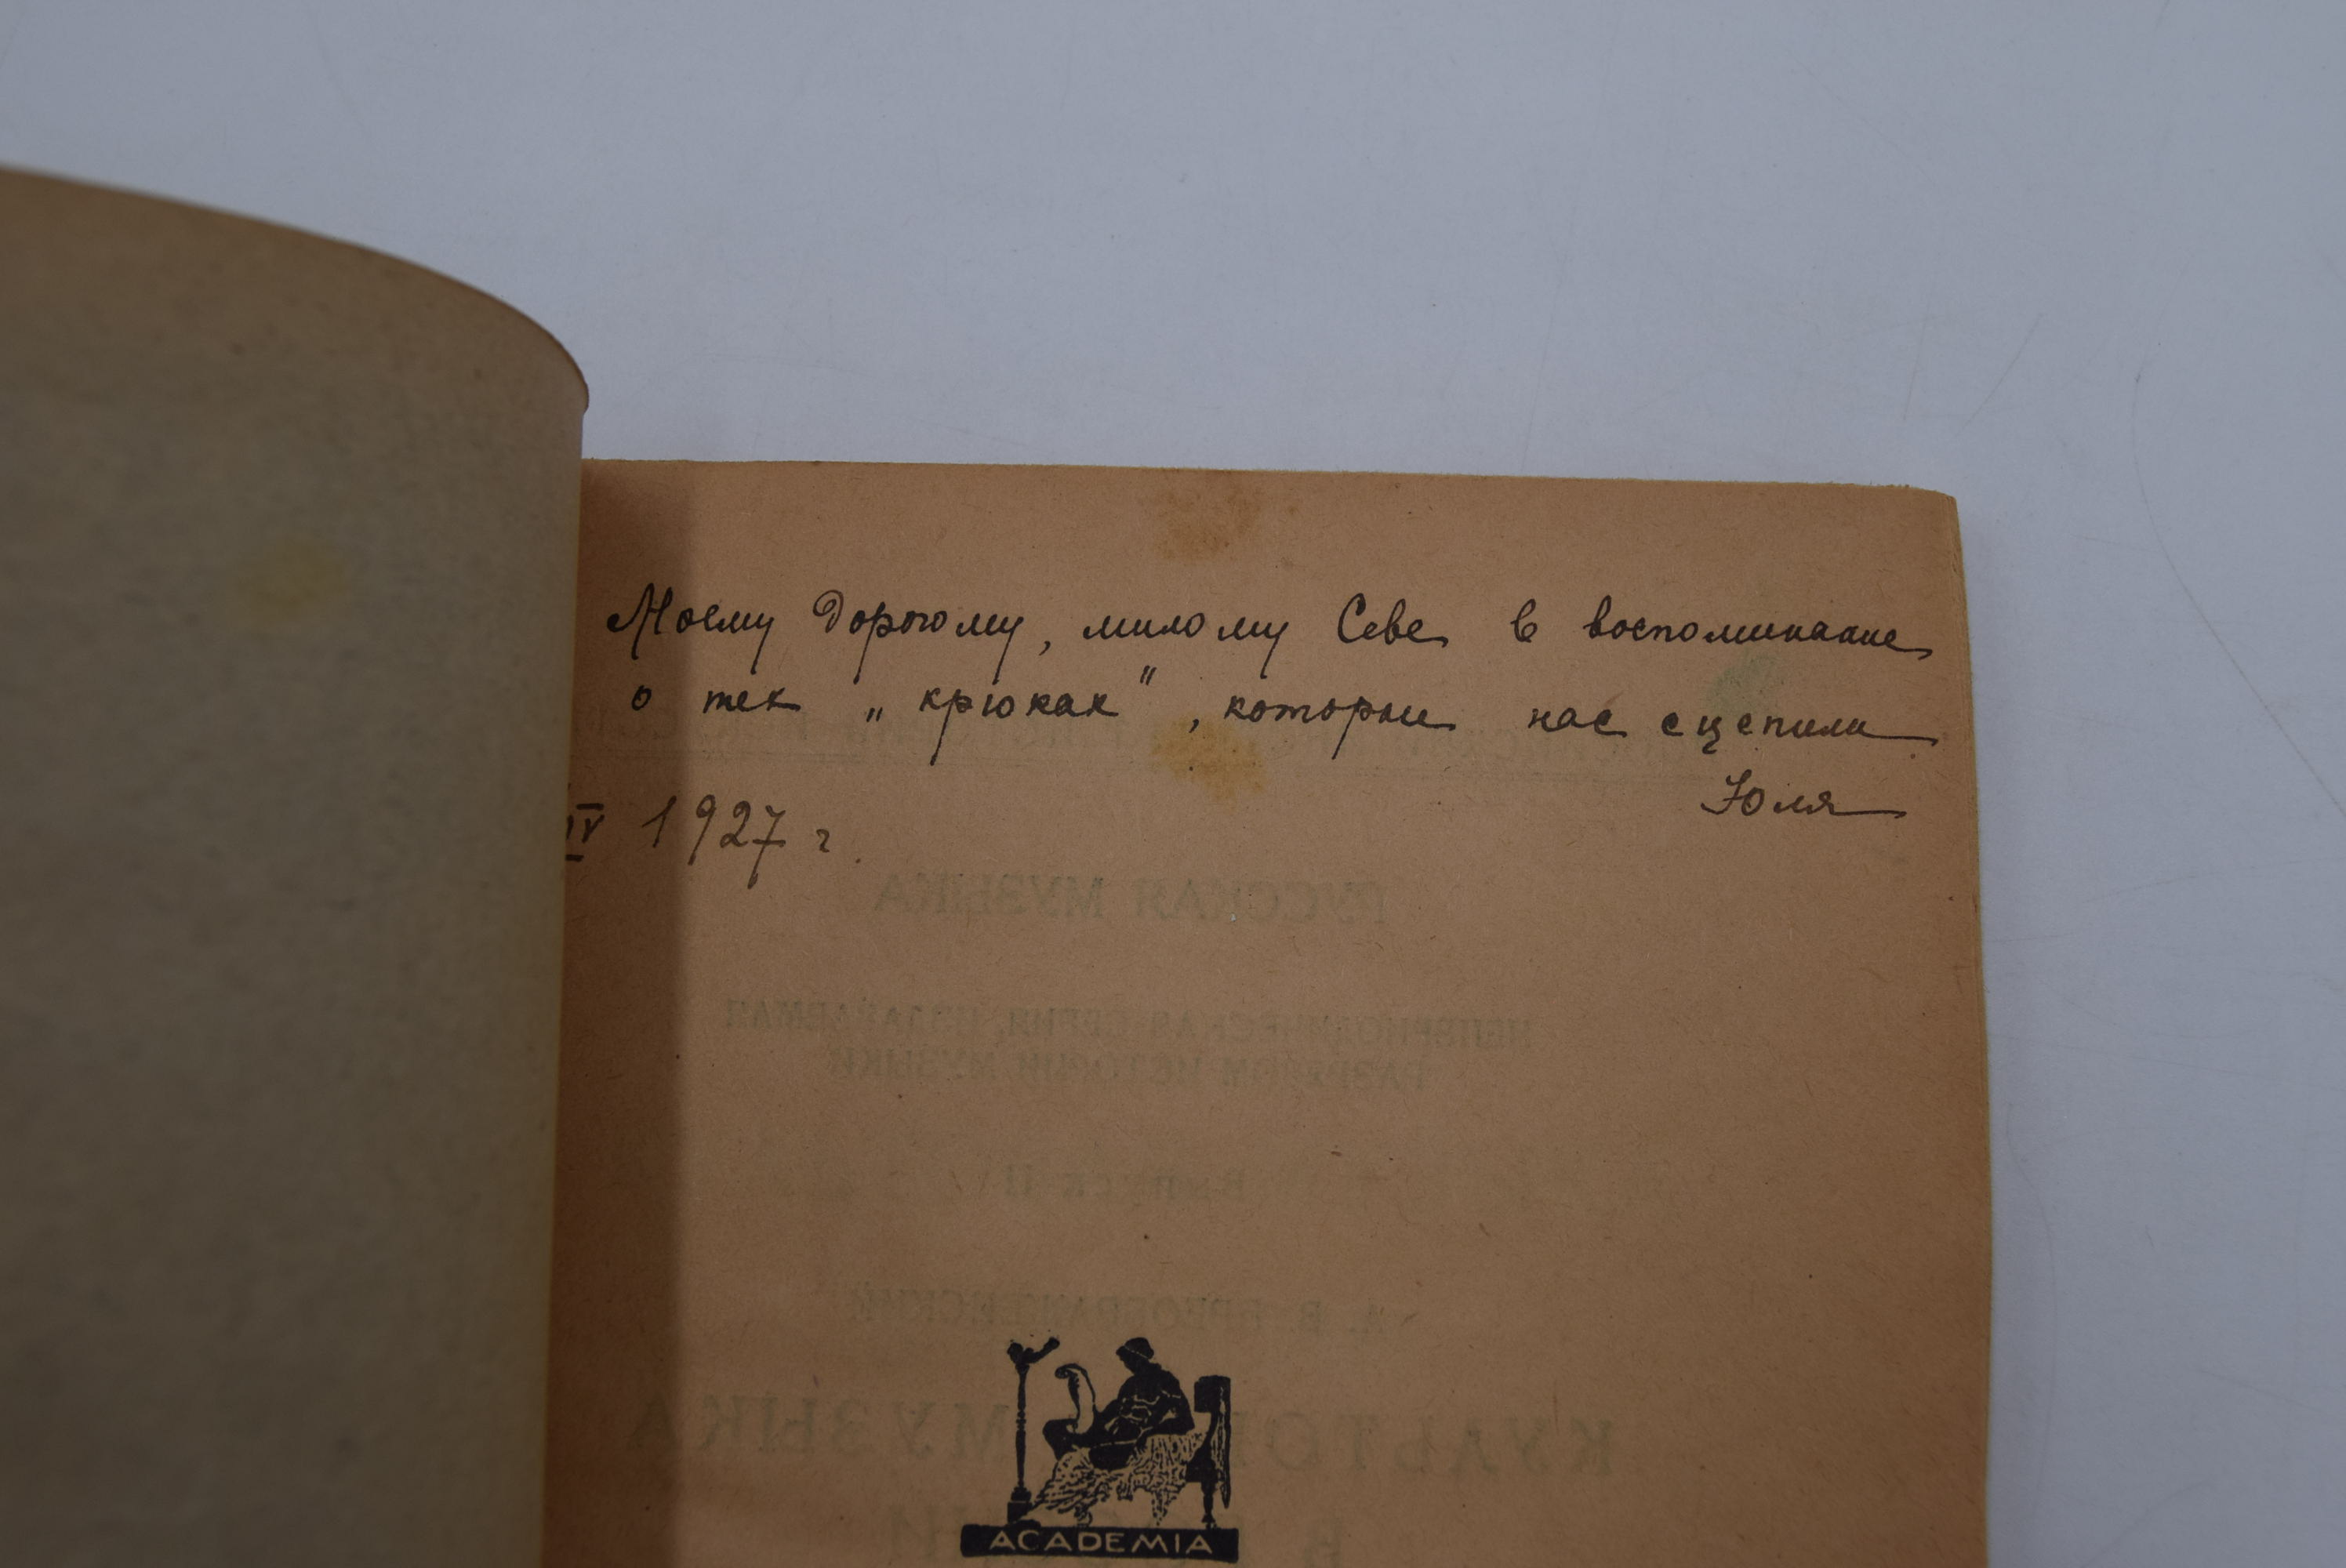 Моему дорогому, милому Севе в воспоминание
о тех „крюках", которые нас сцепили
Юля
IV 1927 г.
РУССКАЯ МУЗЫКА
НЕПЕРИОДИЧЕСКАЯ СЕРИЯ, ИЗДАВАЕМАЯ
РАЗРЯДОМ ИСТОРИИ МУЗЫКИ
Выпуск II
А. В. ПРЕОБРАЖЕНСКИЙ
МУЗЫКА
ACADEMIA